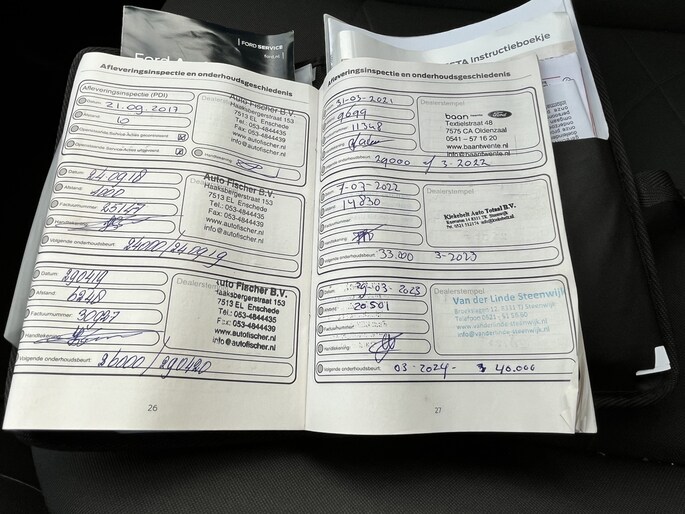 FORD SERVICE
ford.nl
Ford
Instructieboekje
Afleveringsinspectie en onderhoudsgeschiedenis
Afleveringsinspectie (PDI)
Datum: 21.09.2017
Auto Fischer B.V.
Haaksbergerstraat 153
7513 EL Enschede
Tel.: 053-4844435
Fax: 053-4844439
www.autofischer.nl
info@autofischer.nl
Datum: 24.09.18
Afstand:
Factuurnummer:
Handtekening:
Volgende onderhoudsbeurt: 24000/24.09.19
Dealerstempel
Auto Fischer B.V.
Haaksbergerstraat 153
7513 EL Enschede
Tel.: 053-4844435
Fax: 053-4844439
www.autofischer.nl
info@autofischer.nl
Datum: 290419
Afstand: 6248
Factuurnummer: 30097
Handtekening:
Volgende onderhoudsbeurt: 26000/290420
Dealerstempel
Auto Fischer B.V.
Haaksbergerstraat 153
7513 EL Enschede
Tel.: 053-4844435
Fax: 053-4844439
www.autofischer.nl
info@autofischer.nl
26
Afleveringsinspectie en onderhoudsgeschiedenis
31-03-2021
9699
11348
onderhoudsbeurt: 29000 / 3-2022
Dealerstempel
baan Ford
Textielstraat 48
7575 CA Oldenzaal
0541 - 57 16 20
www.baantwente.nl
info@baantwente.nl
7-07-2022
14830
Volgende onderhoudsbeurt: 33.000 3-2023
Dealerstempel
Kiekebelt Auto Totaal B.V.
Datum: 29-03-2023
Afstand: 20501
Factuurnummer:
Handtekening:
Volgende onderhoudsbeurt: 03-2024- 40.000
Dealerstempel
Van der Linde Steenwijk
27